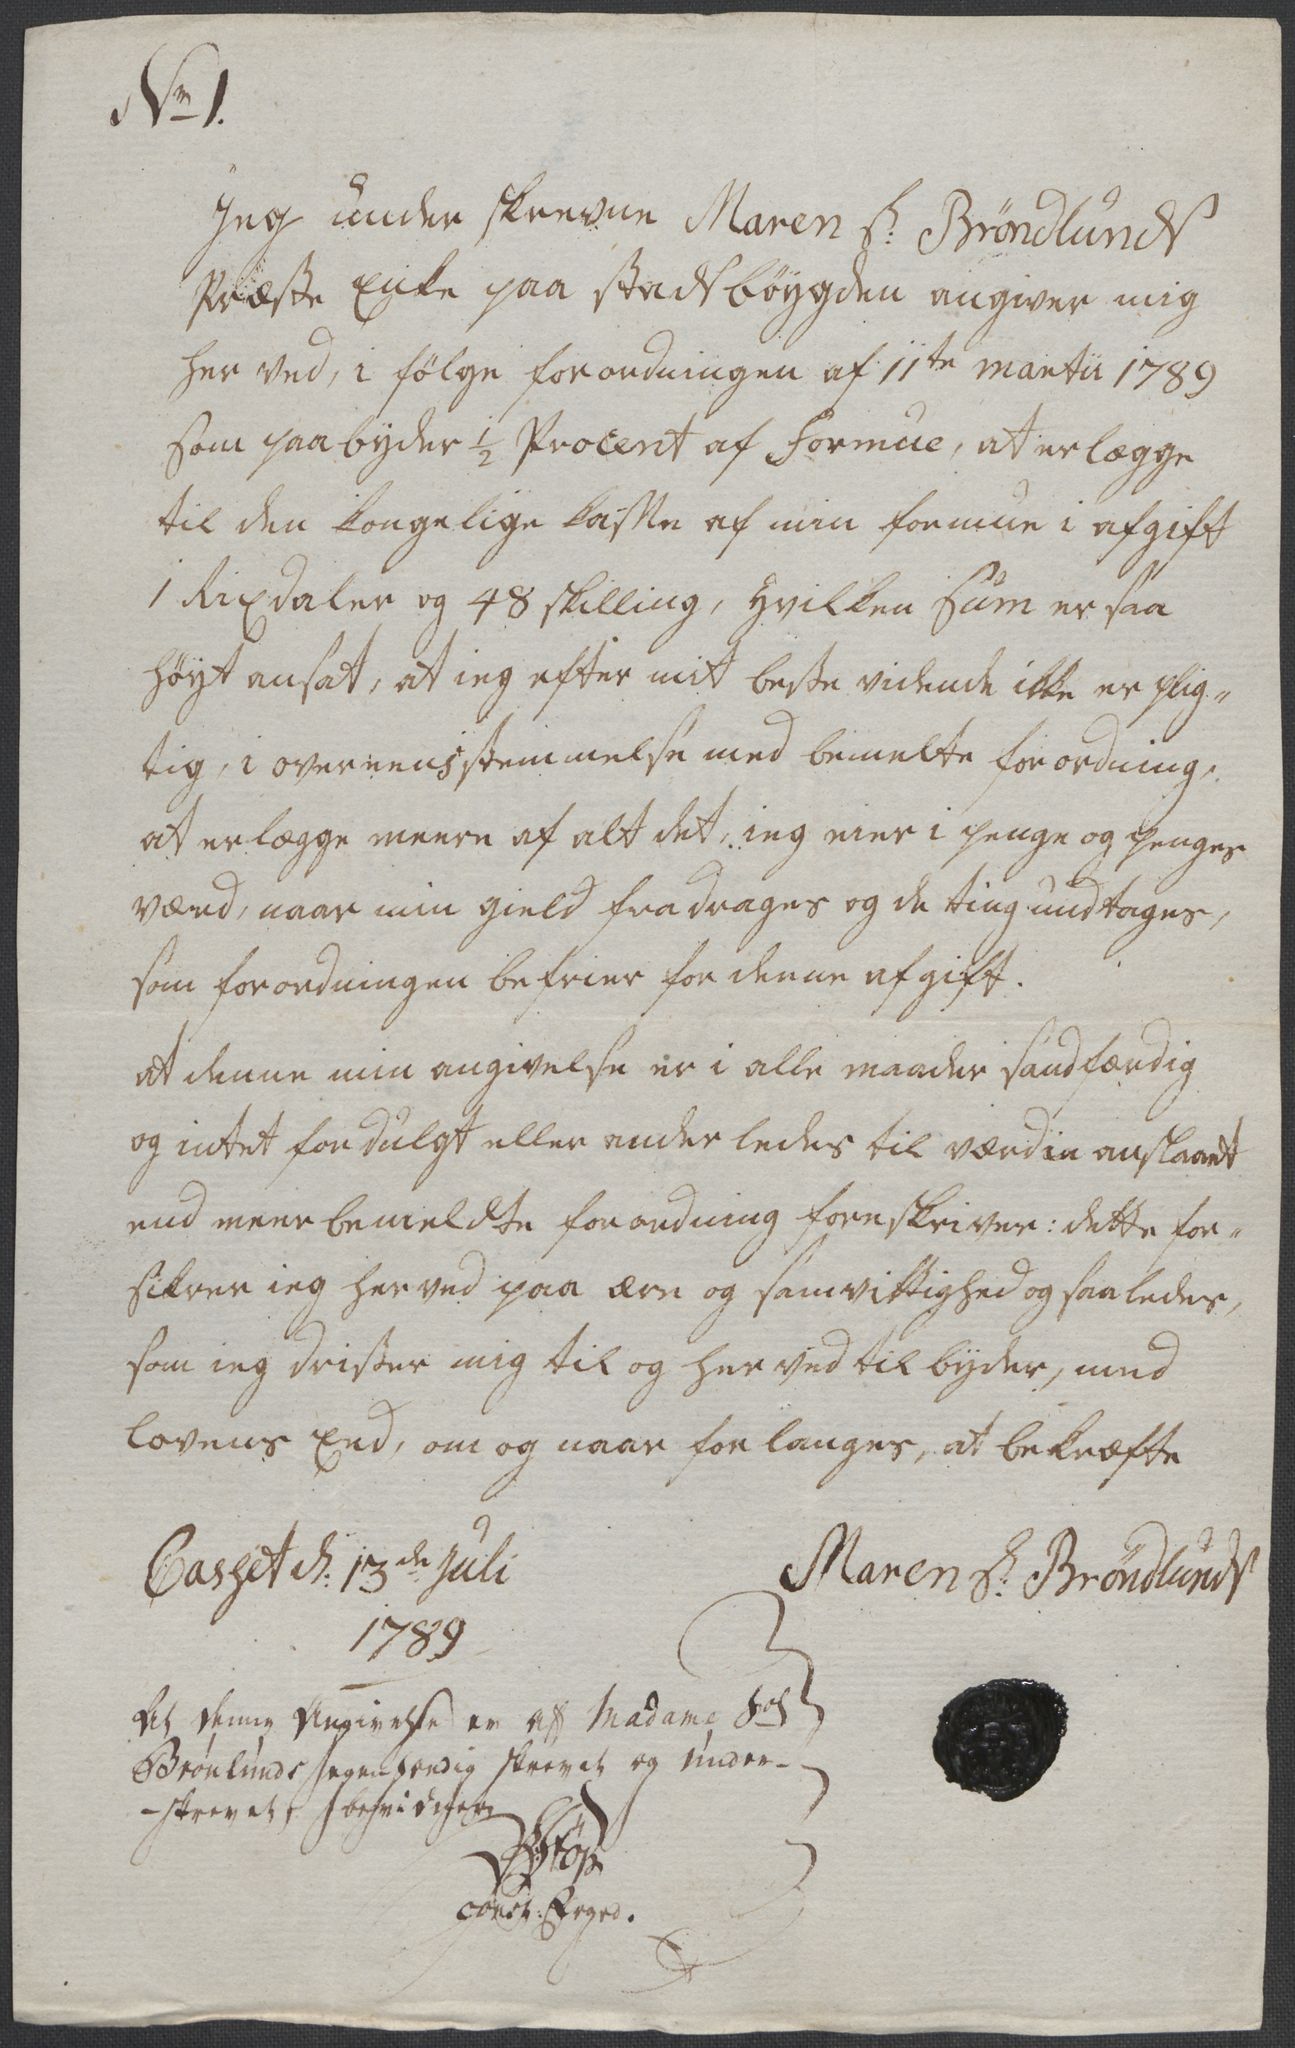 No 1.
Jeg under skrevne Maren S: Bröndlunds
Præste Enke paa stadsböygden angiver mig
her ved, i fölge forordningen af 11te martii 1789
som paa byder 1/2 Procent af Formue, at erlægge
til den kongelige kasse af min formue i afgift
1 Rixdaler og 48 skilling, hvilken Sum er saa
höyt ansat, at ieg efter mit beste vidende ikke er plig-
tig, i overeensstemmelse med bemelte forordning,
at erlægge meere af alt det, ieg eier i penge og penges
værd, naar min gield fra drages og de ting undtages,
som forordningen befrier for denne afgift.
at denne min angivelse er i alle maader sandfærdig
og intet fordulgt eller anderledes til værdie anslaaet
end meerbemeldte forordning foreskriver: dette for-
sikrer ieg herved paa ære og samvittighed og saaledes,
som ieg drister mig til og her ved til byder, med
lovens Eed, om og naar forlanges, at bekræfte
d: 13de Juli
1789
Maren S: Bröndlunds
At denne Angivelse er af Madame
Brönlunds egenhændig skrevet og under-
-skrevet,